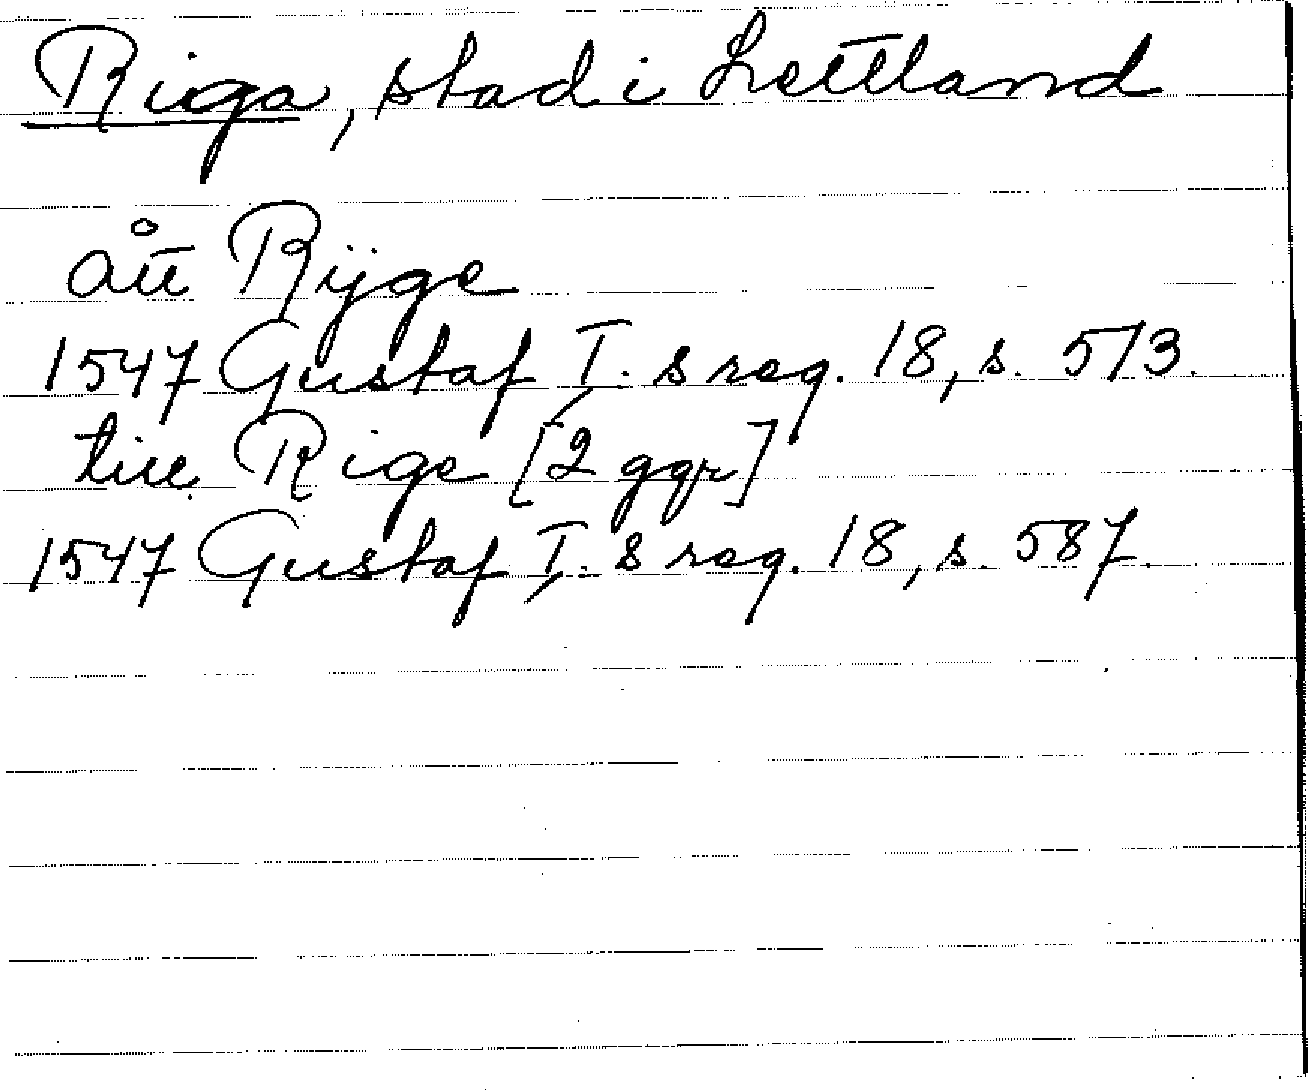 Riga, stad i Lettland
ått Rijge
1547 Gustaf I. s reg. 18, s. 573.
till Rige [2 ggr]
1547 Gustaf I. s reg. 18, s. 587.